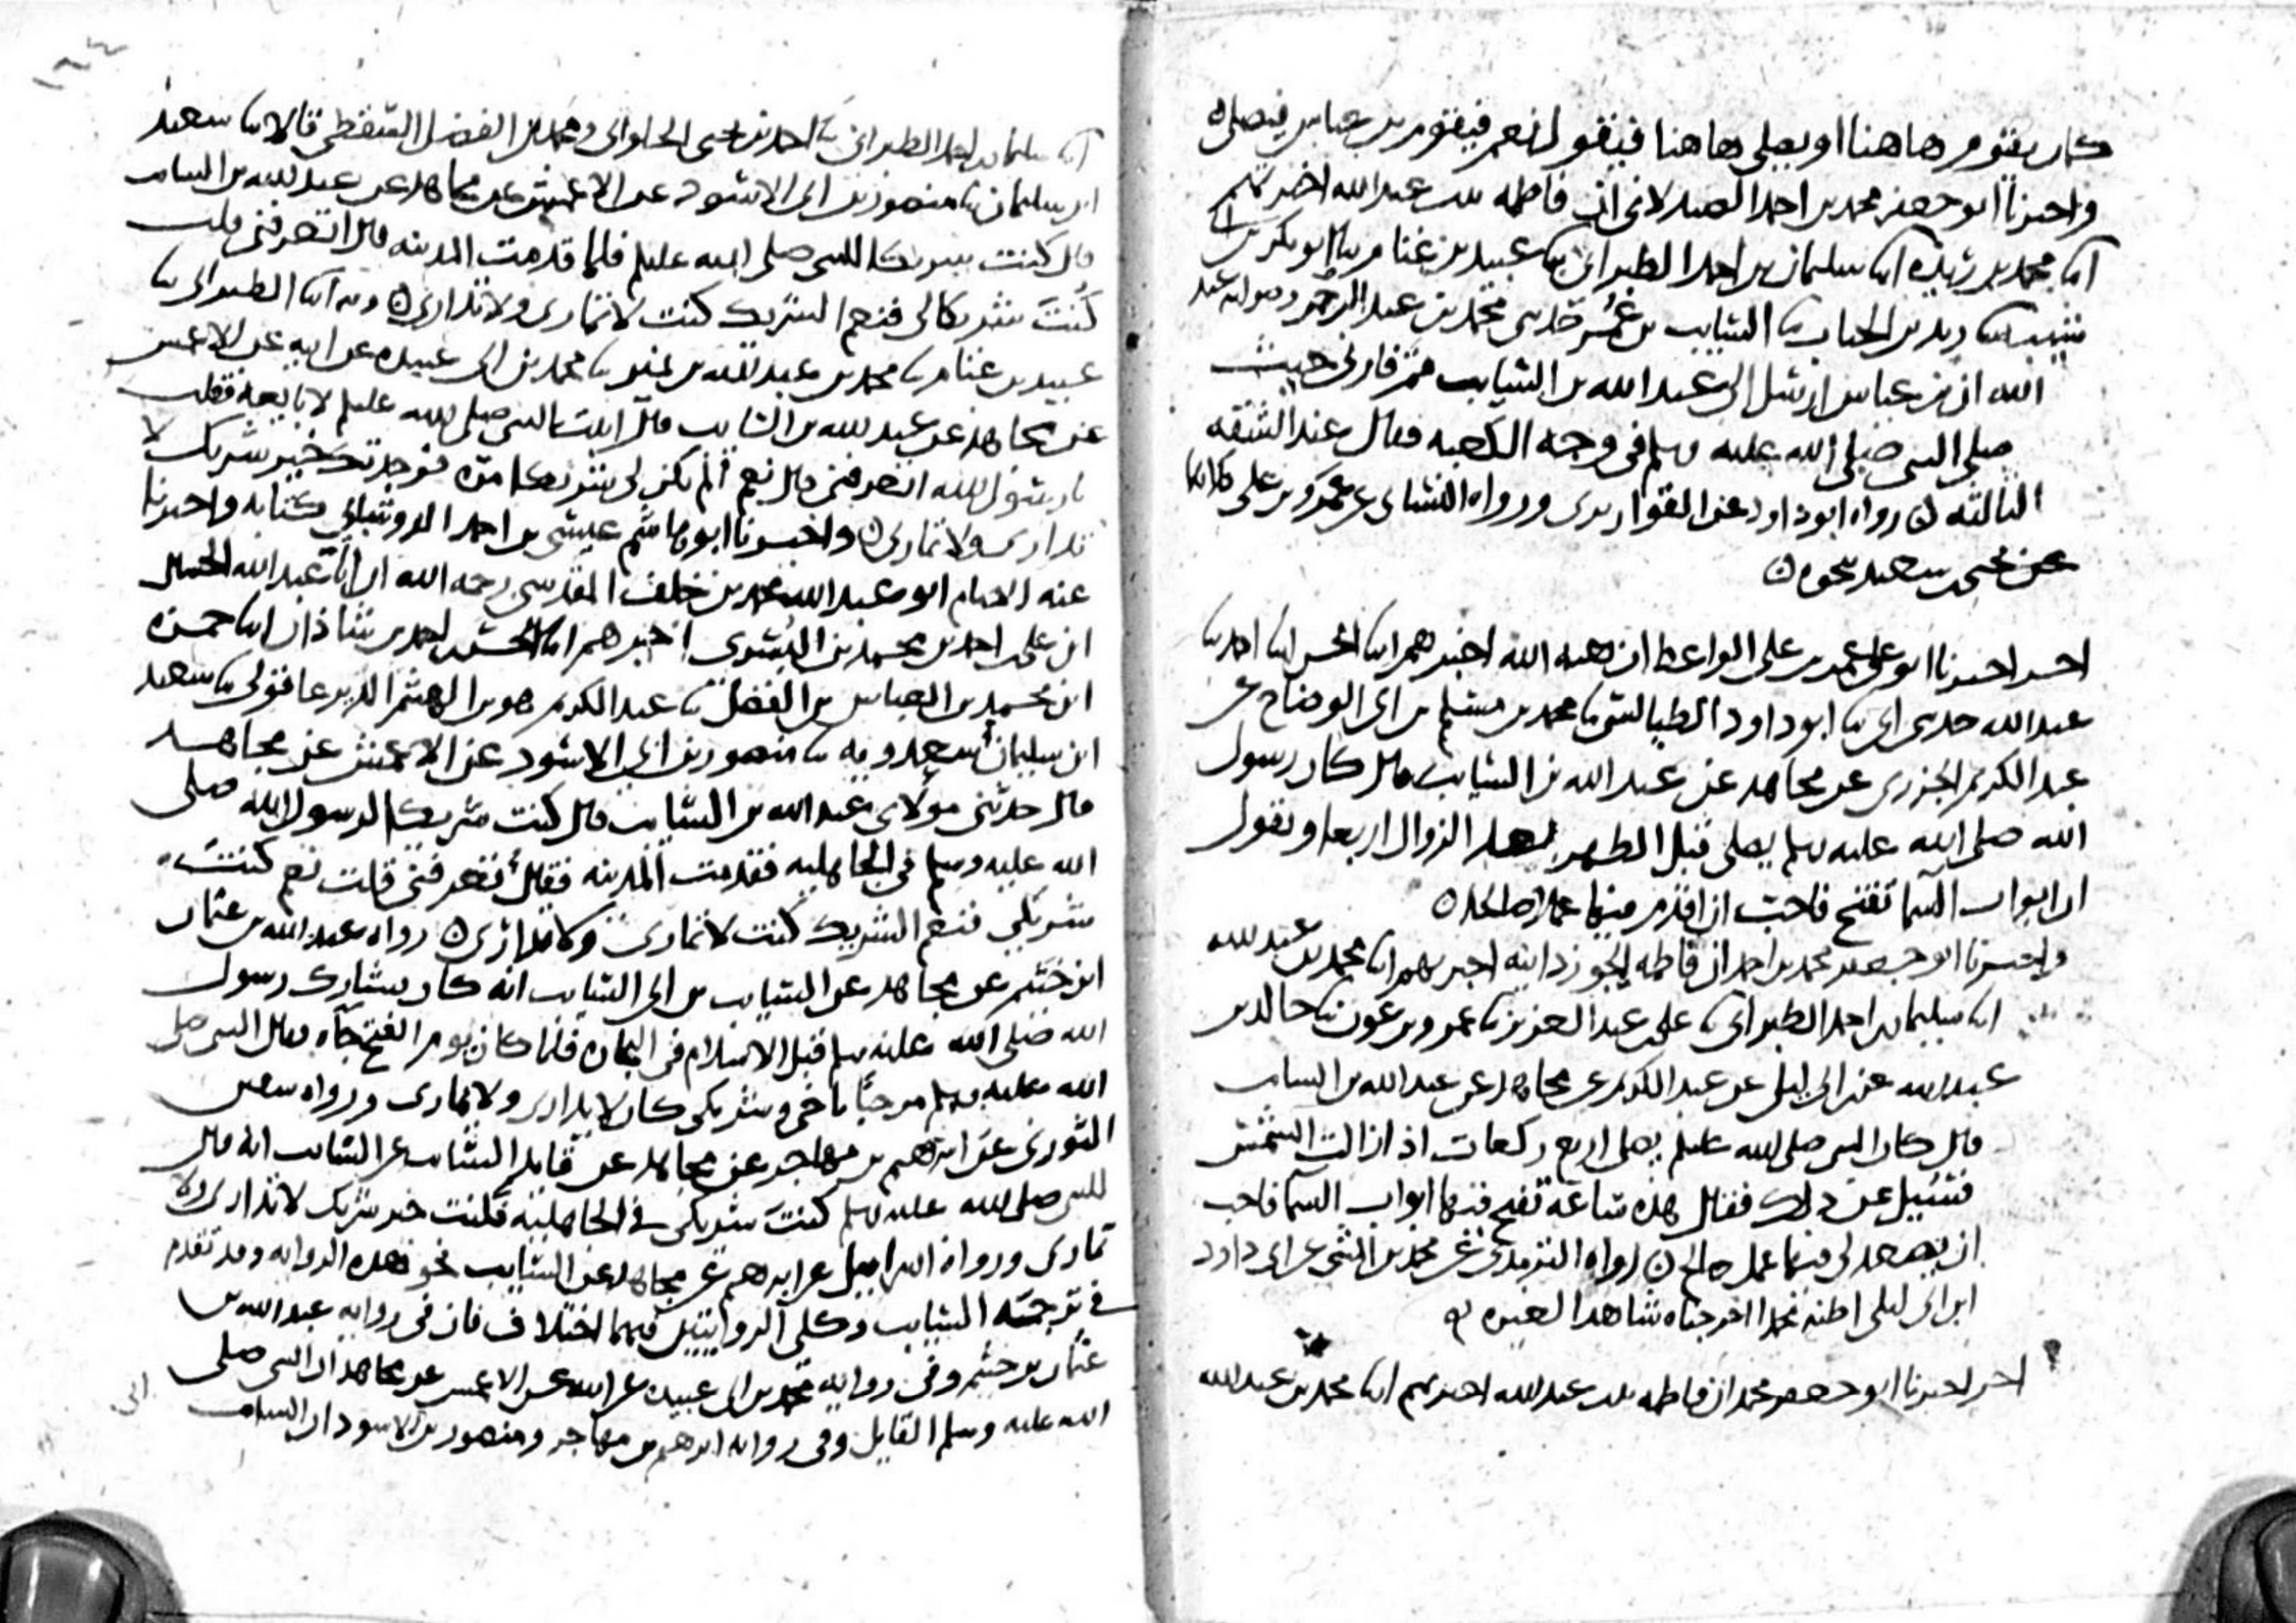 كان يقوم هاهنا او يصلي هاهنا فيقول نعم فيقوم بن عباس فيصلي ه
واخبرنا ابو جعفر محمد بن احمد الصيدلاني ان فاطمه بنت عبد الله اخبرتهم
ابنا محمد بن ريذه ابنا سليمان بن احمد الطبراني ثنا عبيد بن غنام ثنا ابو بكر بن ابي
شيبه ثنا زيد بن الحباب ثنا السايب بن عمر حدثني محمد بن عبد الرحمن عبد
الله ان بن عباس ارسل الى عبد الله بن السايب حيث
صلى النبي صلى الله عليه وسلم في وجه الكعبه فقال عند الشقه
الثالثه ه رواه ابو داود عن القواريري ورواه النسائي عن عمرو بن علي كلاهما
عن يحيى بن سعيد بنحوه ه
اخر اخبرنا ابو علي بن علي الواعظ ان هبه الله اخبرهم ابنا الحسن ابنا احمد ثنا
عبد الله حدثني ابي ثنا ابو داود الطيالسي ثنا محمد بن مسلم بن ابي الوضاح عن
عبد الكريم الجزري عن مجاهد عن عبد الله بن السايب قال كان رسول
الله صلى الله عليه وسلم يصلي قبل الظهر بعد الزوال اربعا ويقول
ان ابواب السما تفتح فاحب ان اقدم فيها عملا صالحا ه
واخبرنا ابو جعفر محمد بن احمد ان فاطمه الجوزدانيه اخبرتهم ابنا محمد بن عبد الله
ابنا سليمان بن احمد الطبراني ثنا علي بن عبد العزيز ثنا عمرو بن عون ثنا خالد بن
عبد الله عن ابن ابي ليلى عن عبد الكريم عن مجاهد عن عبد الله بن السايب
قال كان النبي صلى الله عليه وسلم يصلي اربع ركعات اذا زالت الشمس
فسئيل عن ذلك فقال هذه ساعه تفتح فيها ابواب السما فاحب
ان يصعد لي فيها عمل صالح ه رواه الترمذي عن محمد بن المثنى عن ابي داود
ابن ابي ليلى اظنه محمدا اخرجناه شاهدا لغيره
اخر اخبرنا ابو جعفر محمد ان فاطمه بنت عبد الله اخبرتهم ابنا محمد بن عبد الله
١٦٤
ابنا سليمان بن احمد الطبراني ثنا احمد بن يحيى الحلواني ومحمد بن الفضل السقطي قالا ثنا سعيد
ابن سليمان ثنا منصور بن ابي الاسود عن الاعمش عن مجاهد عن عبد الله بن السايب
قال كنت شريكا للنبي صلى الله عليه وسلم فلما قدمت المدينه قال اتعرفني قلت
كنت شريكا لي فنعم الشريك كنت لا تماري ولا تداري ه وبه ابنا الطبراني ثنا
عبيد بن غنام ثنا محمد بن عبد الله بن نمير ثنا محمد بن ابي عبيده عن ابيه عن الاعمش
عن مجاهد عن عبد الله بن السايب قال اتيت النبي صلى الله عليه وسلم لابايعه فقلت
يا رسول الله اتعرفني قال نعم الم تكن لي شريكا مره فوجدتك خير شريك لا
تداري ولا تماري ه واخبرنا ابو هاشم عيسى بن احمد الدوشابي كتابه واخبرنا
عنه الامام ابو عبد الله محمد بن خلف المقدسي رحمه الله ان ابا عبد الله الحسين
ابن علي بن احمد بن محمد بن البسري اخبرهم ابنا الحسن بن احمد بن شاذان ابنا حمزه
ابن محمد بن العباس بن الفضل ثنا عبد الكريم هو بن الهيثم الديرعاقولي ثنا سعيد
ابن سليمان سعدويه ثنا منصور بن ابي الاسود عن الاعمش عن مجاهد
قال حدثني مولاي عبد الله بن السايب قال كنت شريكا لرسول الله صلى
الله عليه وسلم في الجاهليه فقدمت المدينه فقال تعرفني قلت نعم كنت
شريكي فنعم الشريك كنت لا تماري ولا تداري ه رواه عبد الله بن عثمان
ابن خثيم عن مجاهد عن السايب بن ابي السايب انه كان يشارك رسول
الله صلى الله عليه وسلم قبل الاسلام في التجاره فلما كان يوم الفتح جاه فقال النبي صلى
الله عليه وسلم مرحبا باخي وشريكي كان لا يداري ولا يماري ورواه سفين
الثوري عن ابرهيم بن مهاجر عن مجاهد عن قايد السايب عن السايب انه قال
للنبي صلى الله عليه وسلم كنت شريكي في الجاهليه فكنت خير شريك لا تداري ولا
تماري ورواه اسراييل عن ابرهيم عن مجاهد عن السايب نحو هذه الروايه وقد تقدم
في ترجمه السايب وكلي الروايتين فيهما اختلاف فان في روايه عبد الله بن
عثمان بن خثيم وفي روايه محمد بن ابي عبيده عن ابيه عن الاعمش عن مجاهد ان النبي صلى
الله عليه وسلم القايل وفي روايه ابرهيم بن مهاجر ومنصور بن الاسود ان السايب